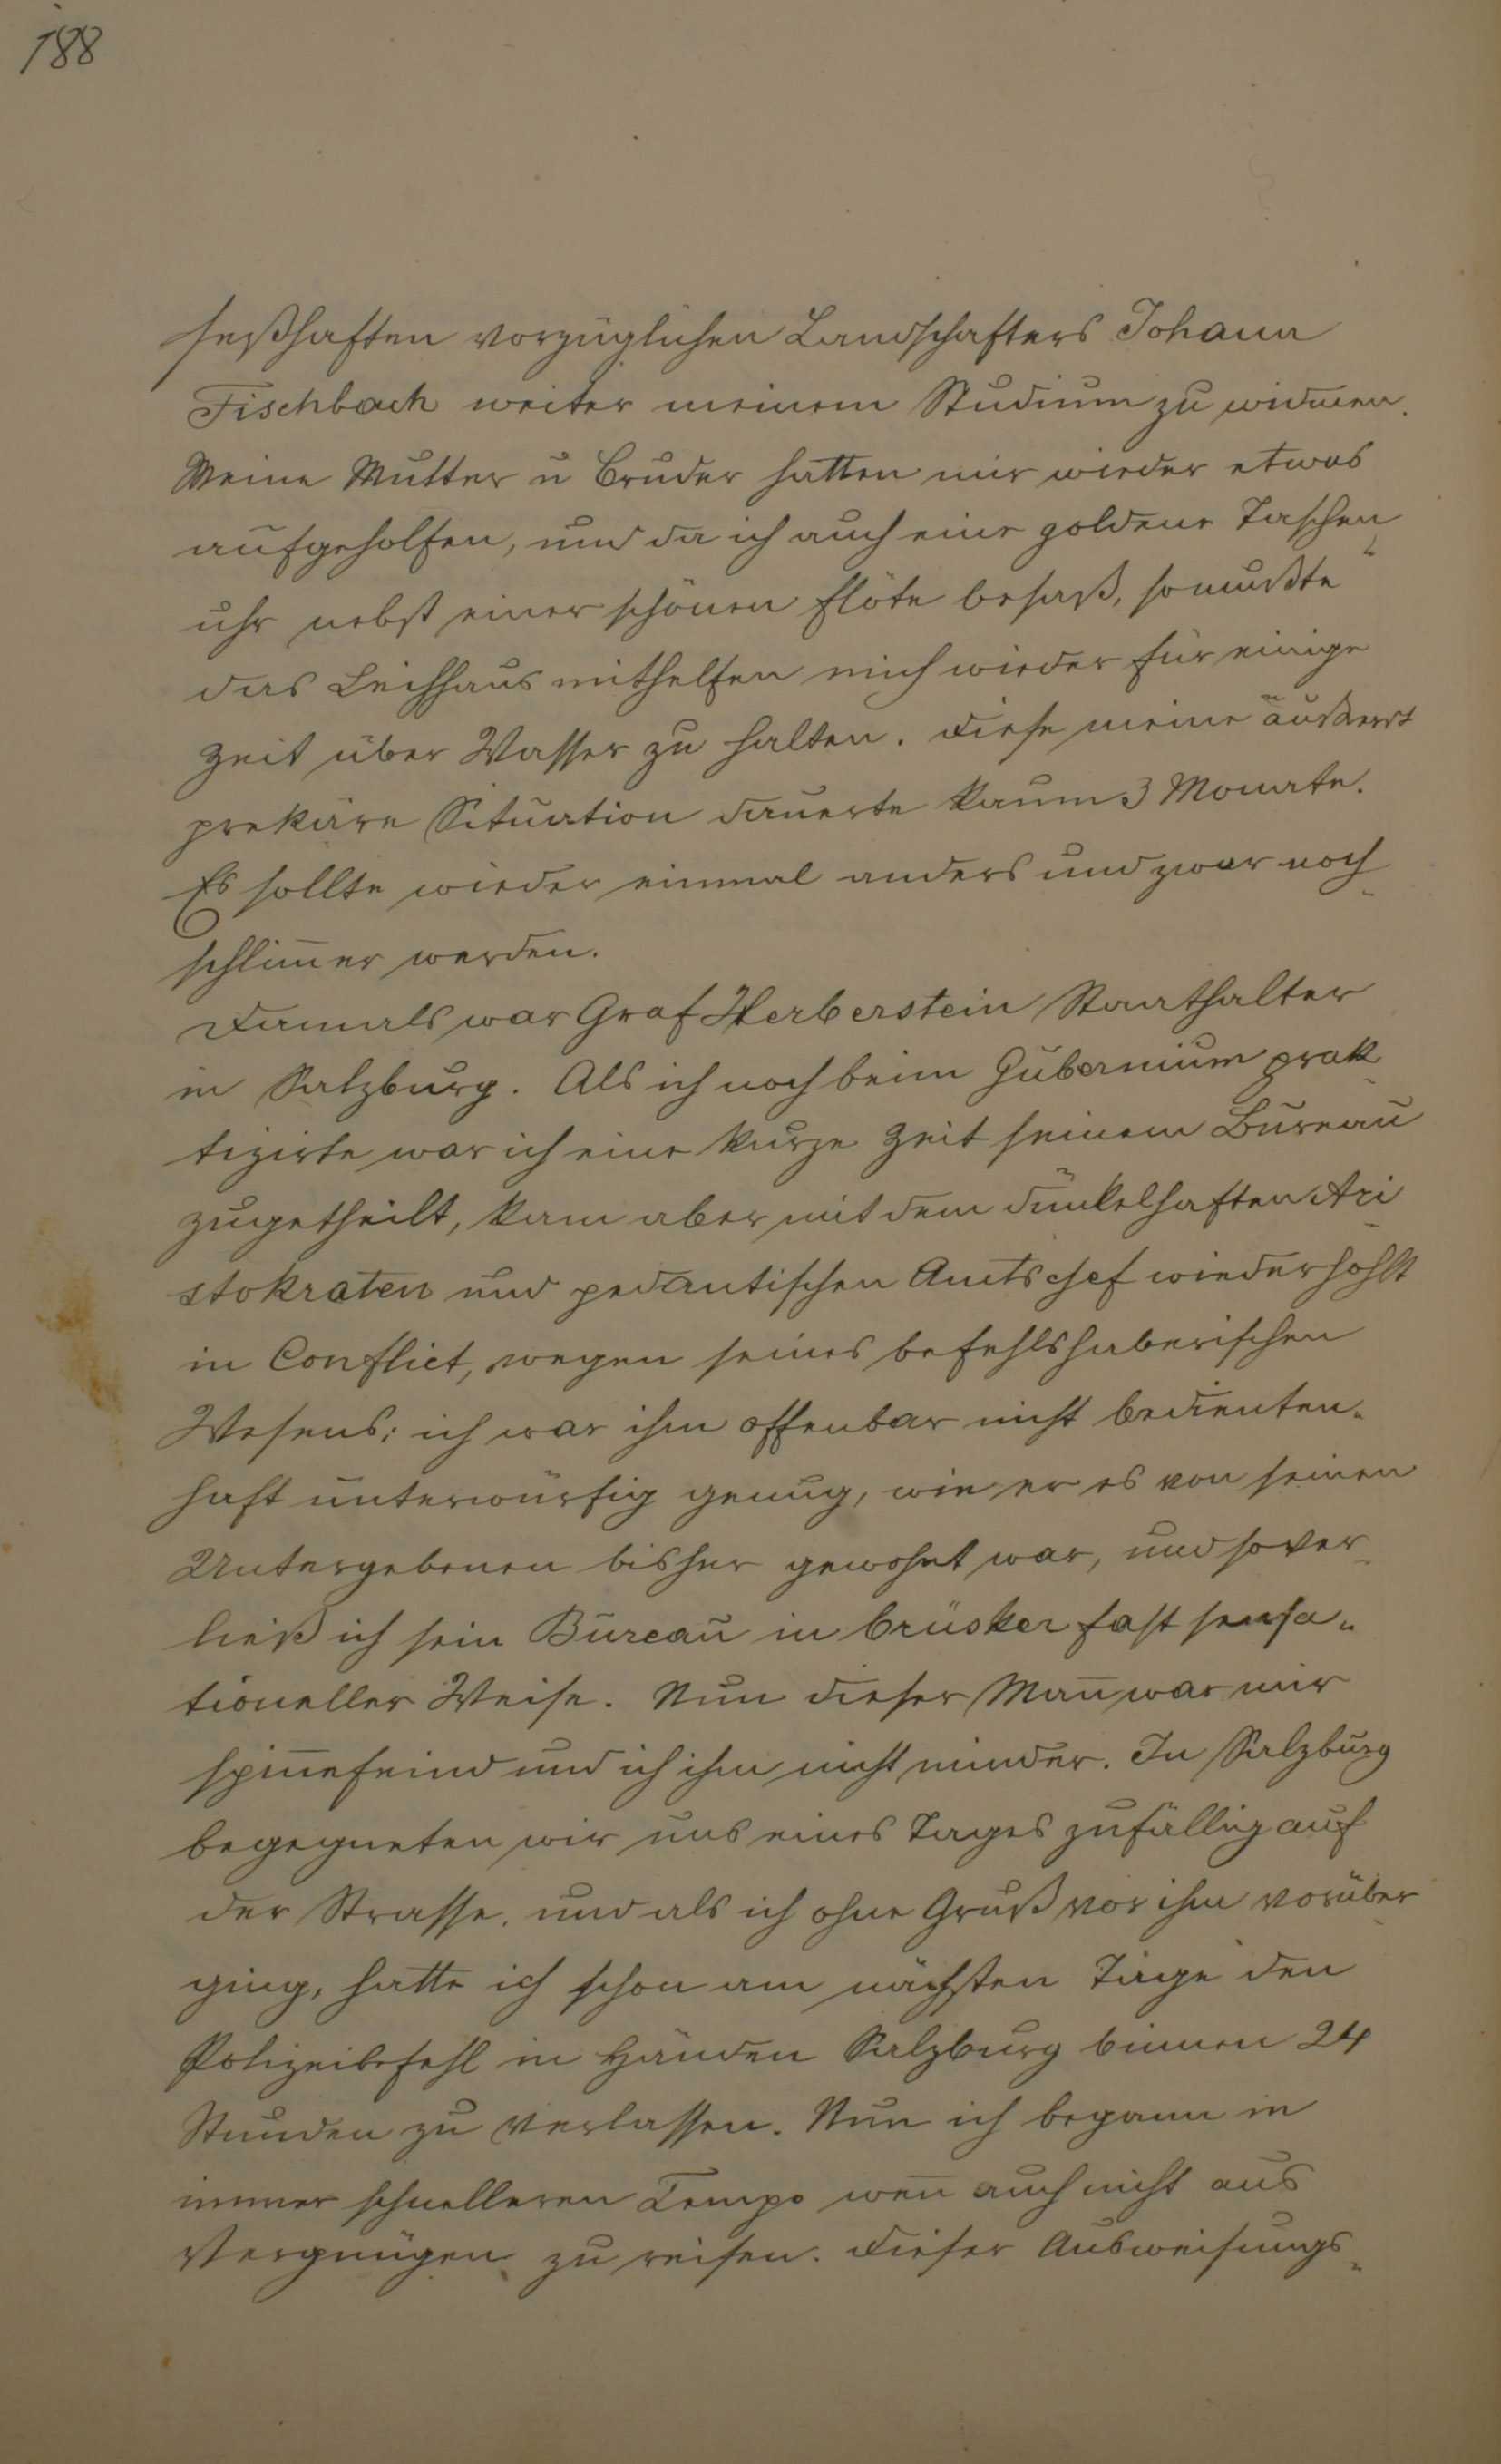 188
seßhaften vorzüglichen Landschafters Johann
Fischbach weiter meinem Studium zu widmen.
Meine Mutter u Bruder hatten mir wieder etwas
aufgeholfen, und da ich auch eine goldene Taschen-
uhr nebst einer schönen Flöte besaß, so mußte
das Leihhaus mithelfen mich wieder für einige
Zeit über Wasser zu halten. Diese meine äußerst
prekäre Situation dauerte kaum 3 Monate.
Es sollte wieder einmal anders und zwar noch
schlim̄er werden.
Damals war Graf Herberstein Staathalter
in Salzburg. Als ich noch beim Gubernium prak-
tizirte war ich eine kurze Zeit seinem Bureau
zugetheilt, kam aber mit dem dünkelhaften Ari-
stokraten und pedantischen Amtschef wiederhohlt
in Conflict, wegen seines befehlshaberischen
Wesens; ich war ihm offenbar nicht bedienten-
haft unterwürfig genug, wie er es von seinen
Untergebenen bisher gewohnt war, und so ver-
ließ ich sein Bureau in brüsker fast sensa-
tioneller Weise. Nun dieser Man̄ war mir
spin̄efeind und ich ihm nicht minder. In Salzburg
begegneten wir uns eines Tages zufällig auf
der Strasse, und als ich ohne Gruß vor ihm vorüber-
ging, hatte ich schon am nächsten Tage den
Polizeibefehl in Händen Salzburg binnen 24
Stunden zu verlassen. Nun ich begann in
immer schnelleren Tempo wen̄ auch nicht aus
Vergnügen zu reisen. Dieser Ausweisungs-